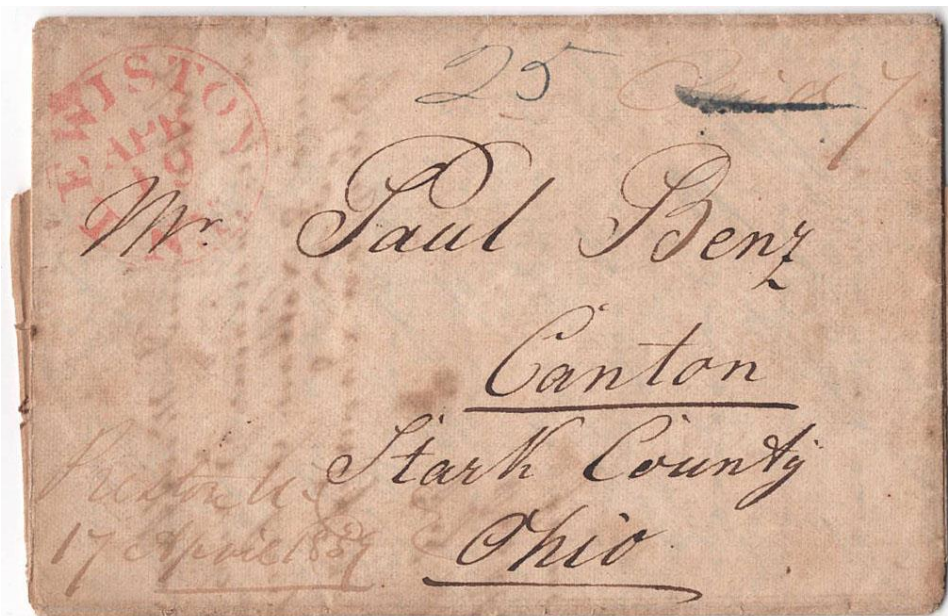 LEWISTON
APR
19
N.Y.
25 Paid 7
Mr. Paul Benz
Canton
Stark County
Ohio
Preston U.C.
17 April 1839